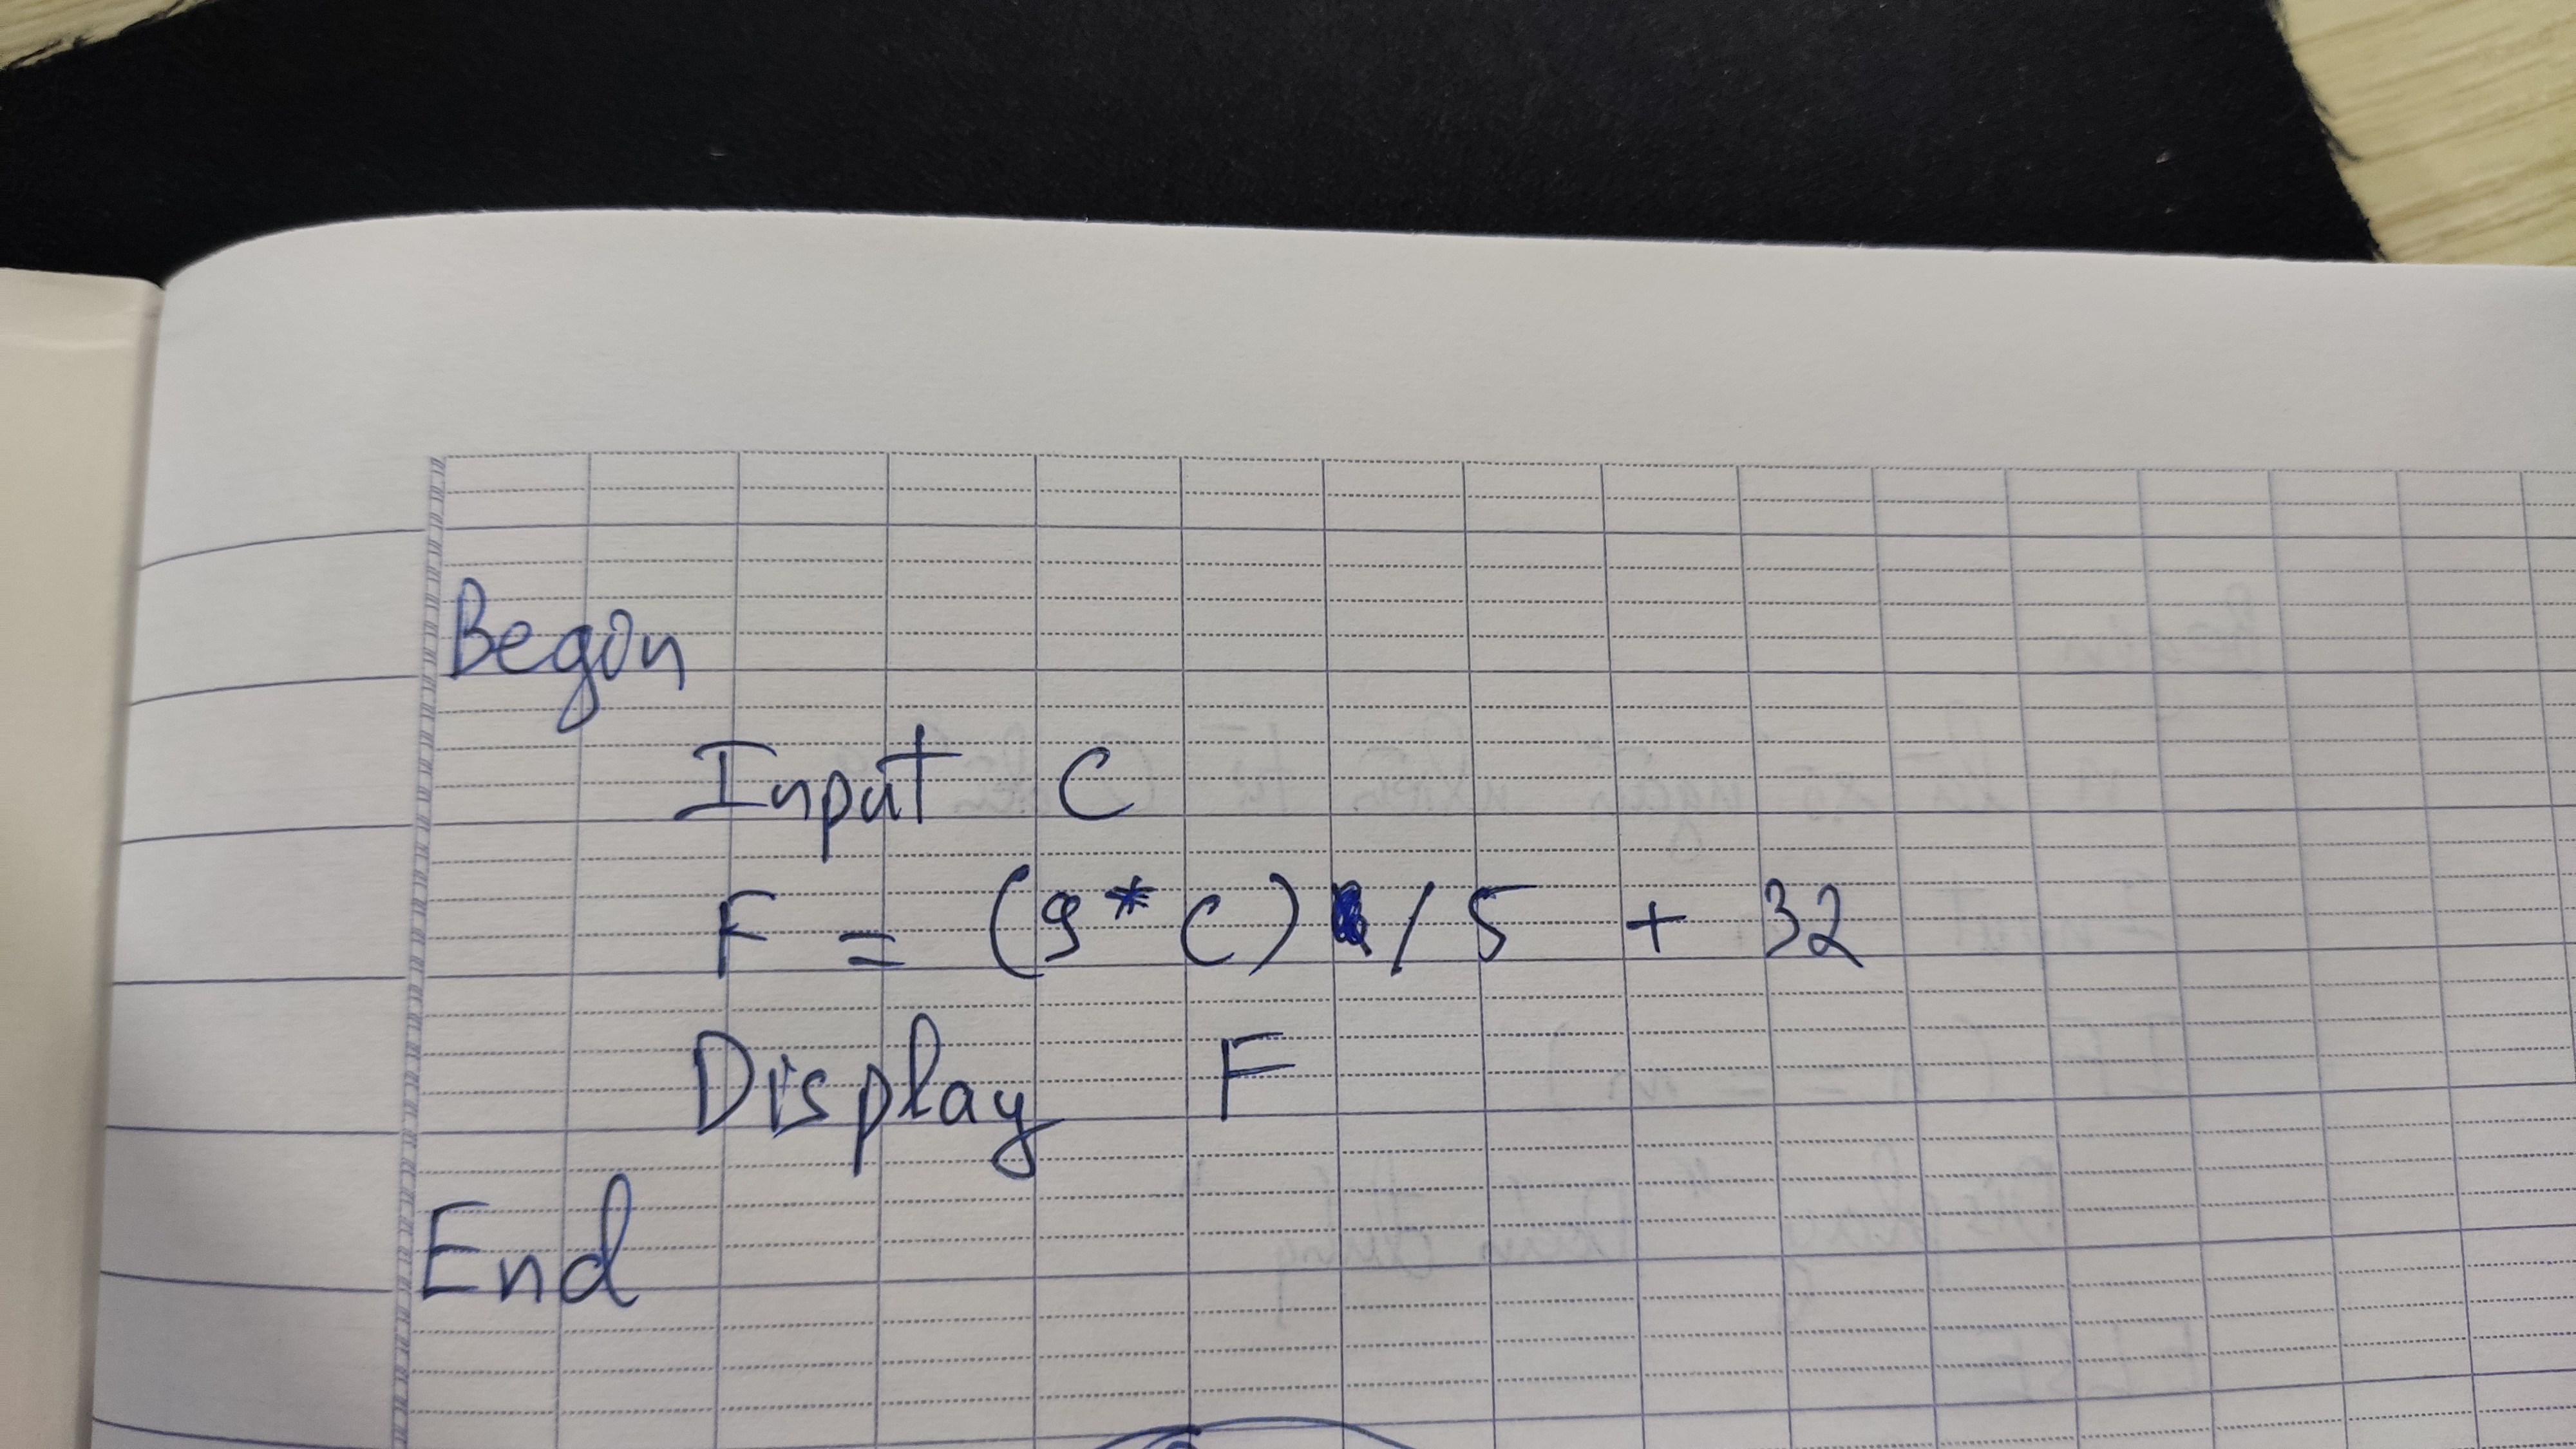 Begin
Input C
F = (9*C) / 5 + 32
Display F
End